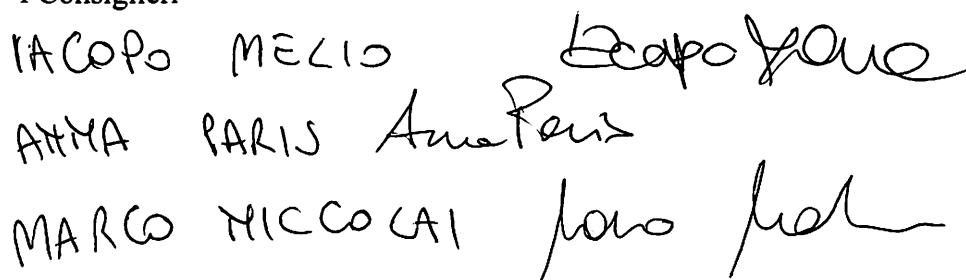 I Consiglieri
IACOPO MELIO Iacopo Melio
ANNA PARIS Anna Paris
MARCO NICCOLAI Marco